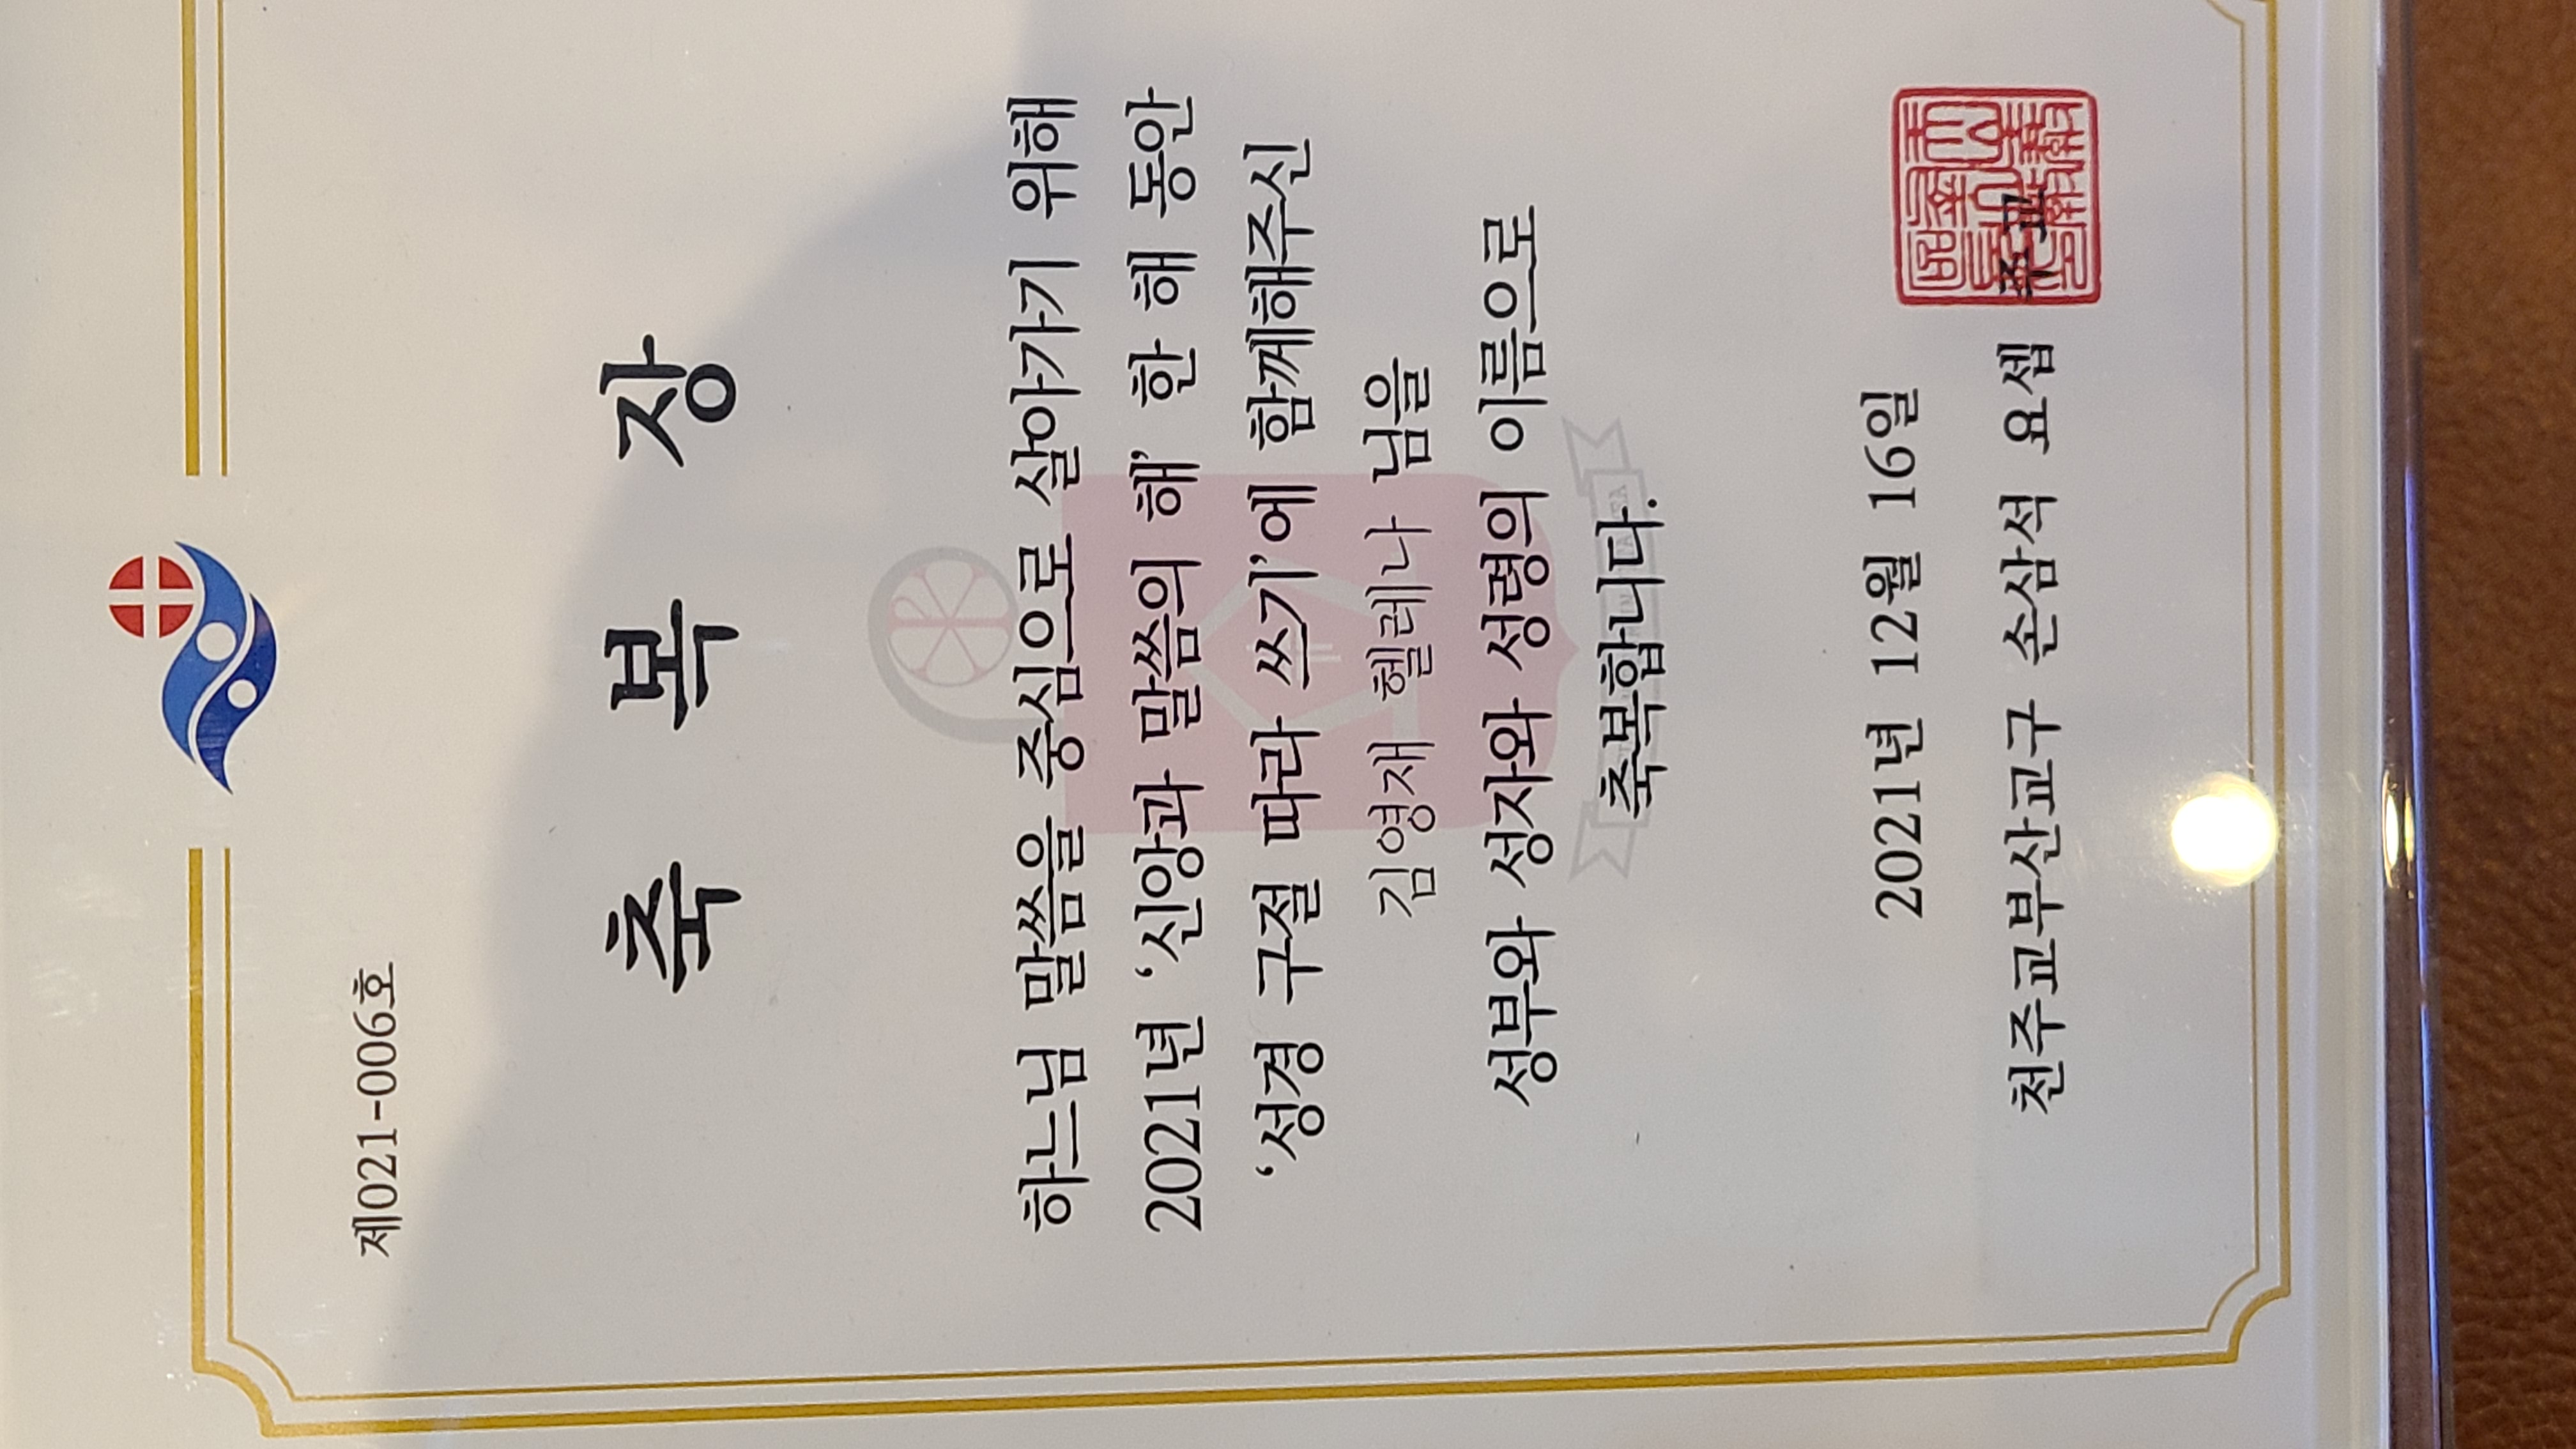 제021-006호
축 복 장
하느님 말씀을 중심으로 살아가기 위해
2021년 ‘신앙과 말씀의 해’ 한 해 동안
‘성경 구절 따라 쓰기’에 함께해주신
김영재 헬레나 님을
성부와 성자와 성령의 이름으로
축복합니다.
2021년 12월 16일
천주교부산교구 손삼석 요셉 주교